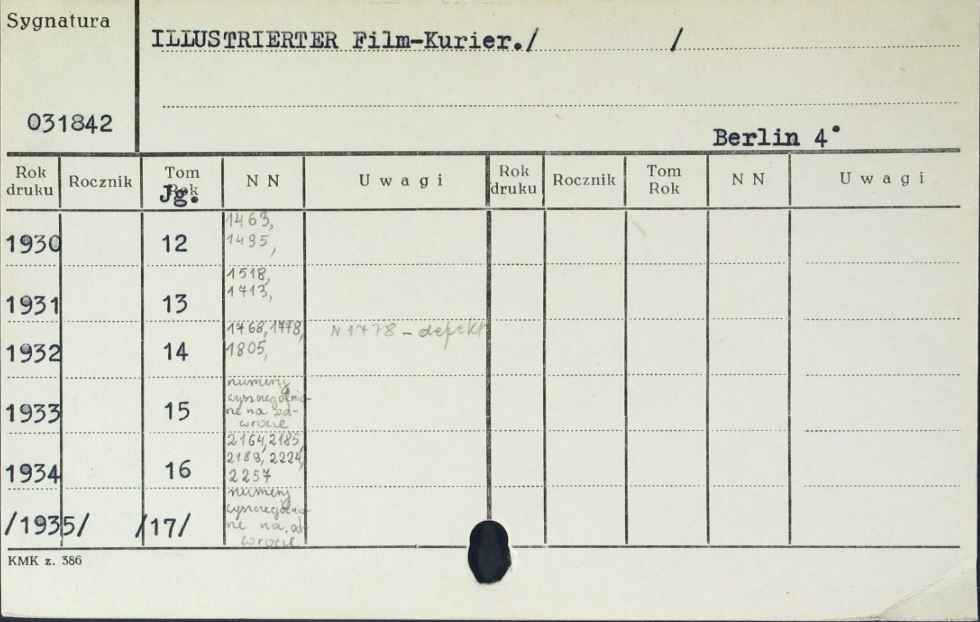 Sygnatura
ILLUSTRIERTER Film-Kurier./ /
031842
Berlin 4°
Rok druku Rocznik Tom Rok Jg. N N Uwagi Rok druku Rocznik Tom Rok N N Uwagi
1930 12 1463,
1495,
1931 13 1518,
1713,
1932 14 1768, 1778, N 1778 - defekt
1805,
1933 15 numery
wyszczególnio-
ne na od-
wrocie
1934 16 2164, 2185
2189, 2224,
2257
/1935/ /17/ numery
ne na od-
wrocie
KMK z. 386